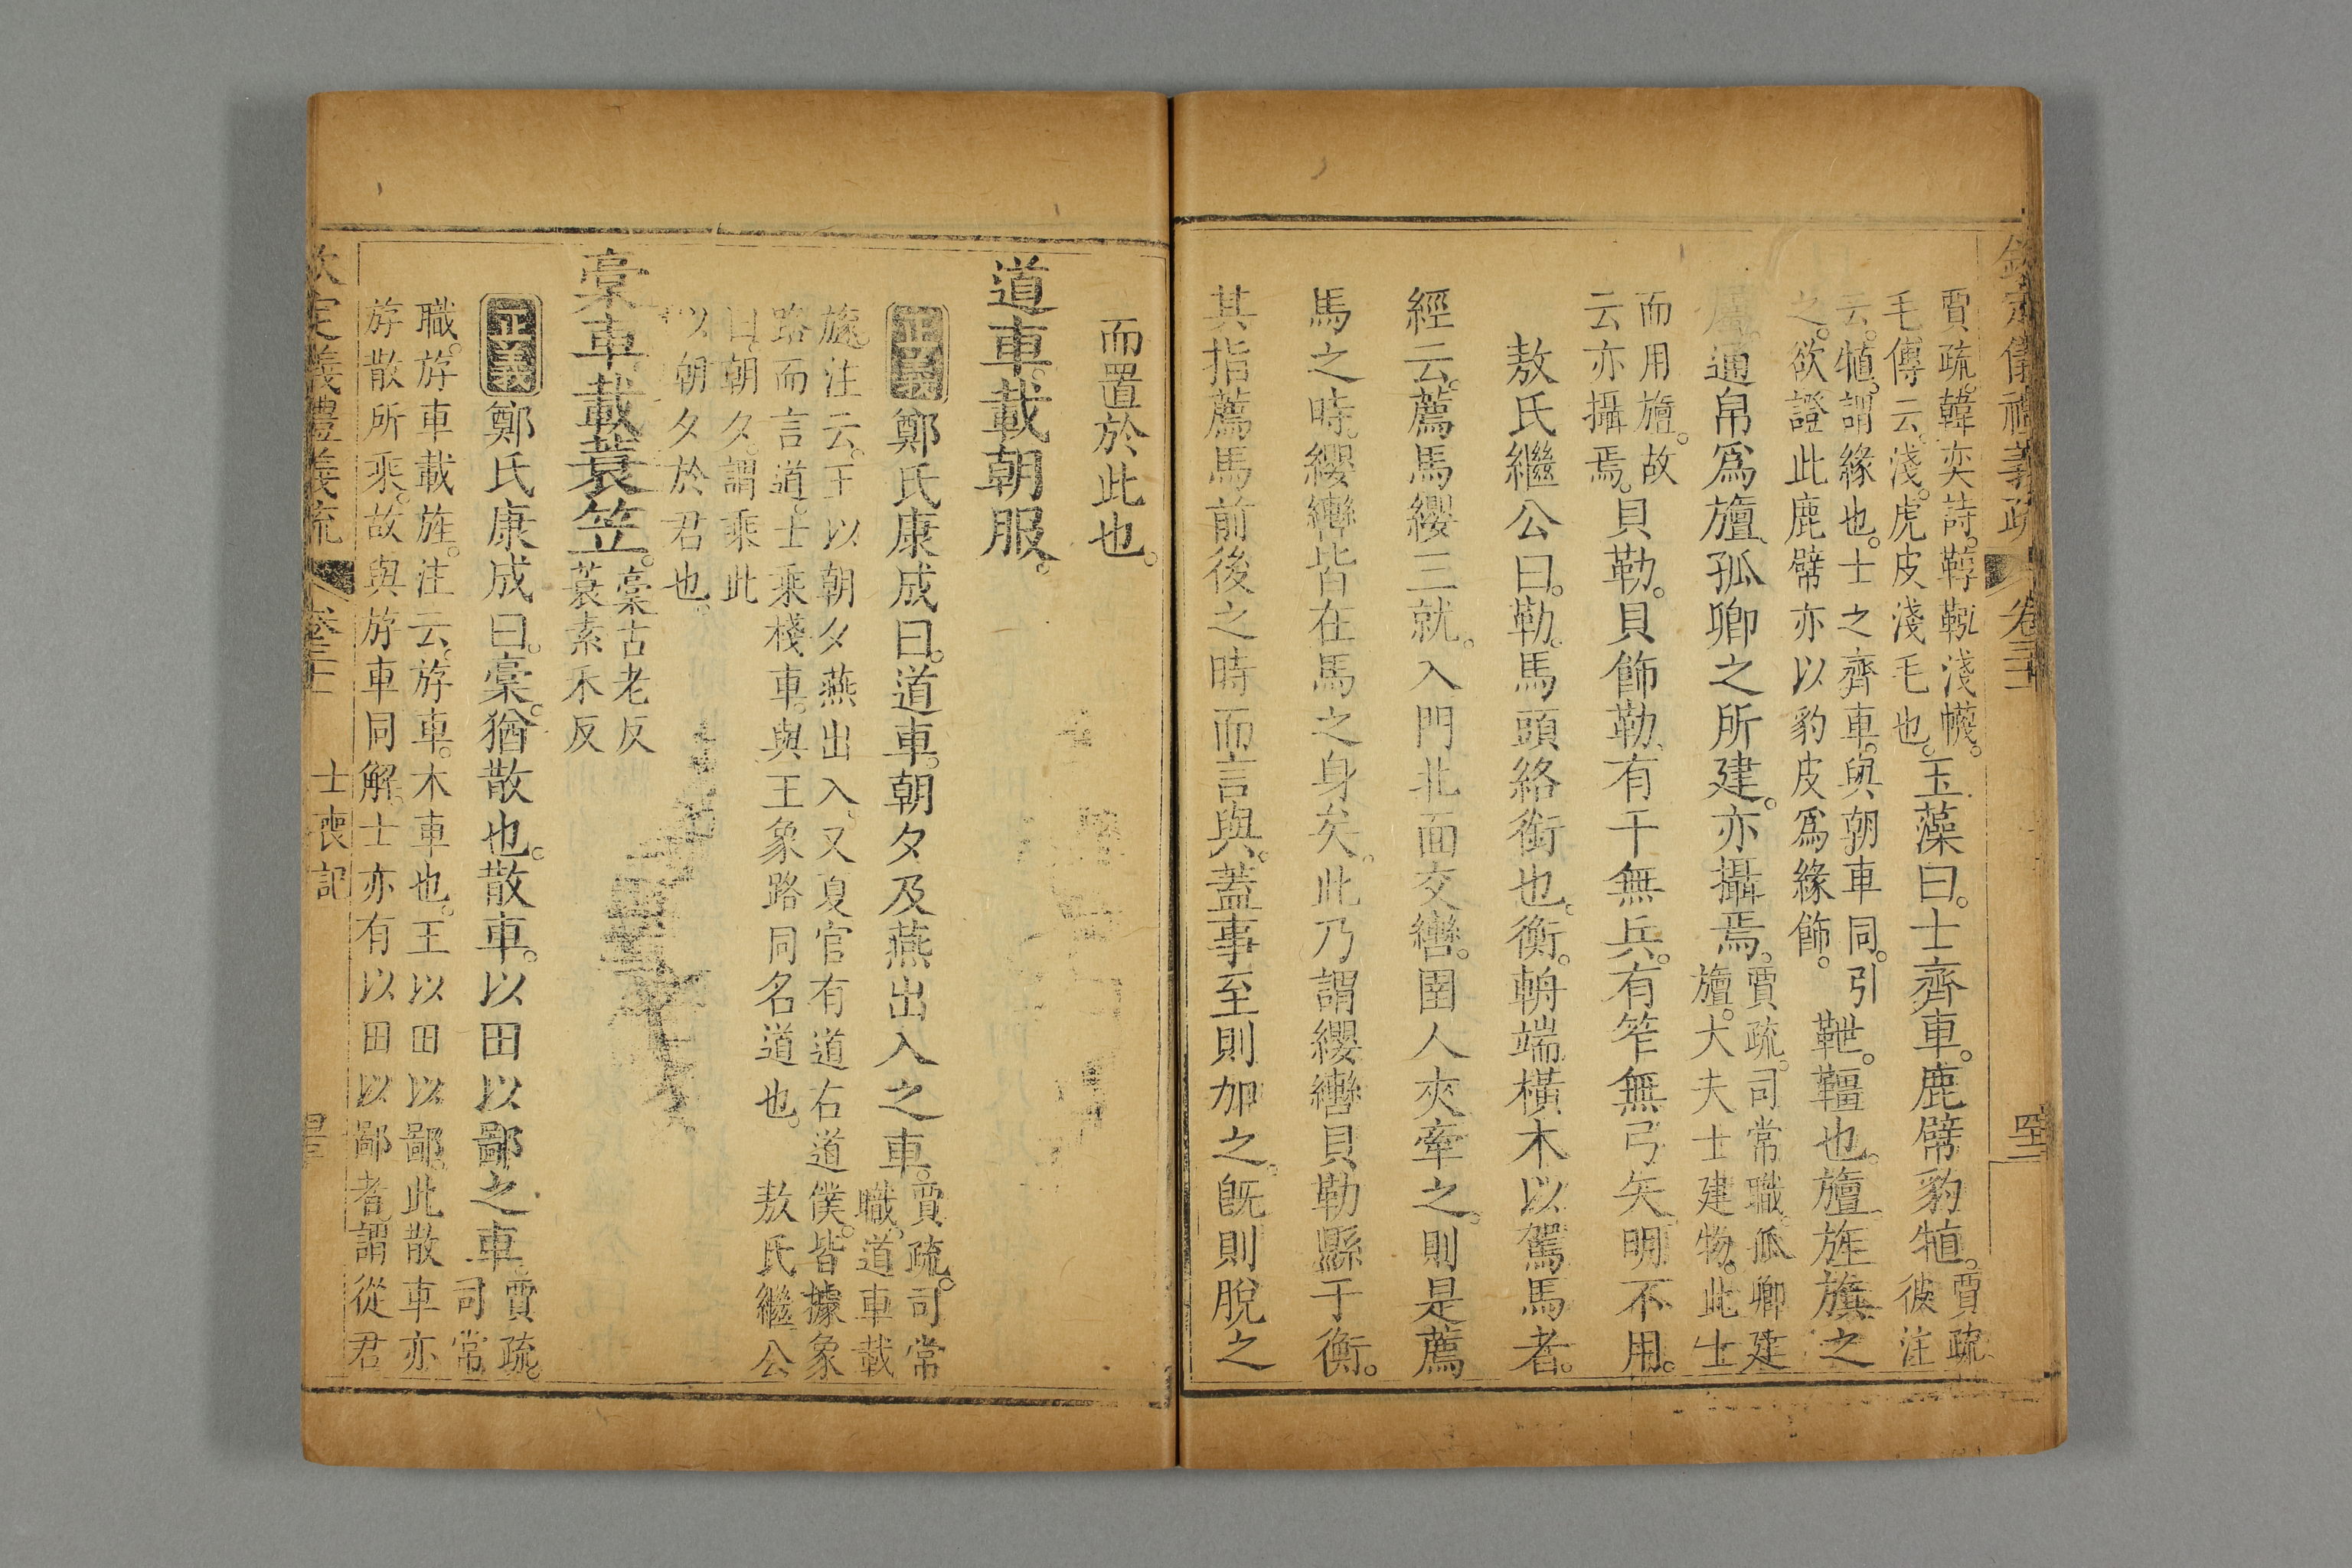 欽定儀禮義疏 卷三十一
賈疏。韓奕詩。鞹鞃淺幭。
毛傳云。淺。虎皮淺毛也。
玉藻曰。士齊車。鹿幦豹犆。
賈疏
彼注
云。犆。謂緣也。士之齊車。與朝車同。引
之。欲證此鹿幦亦以豹皮爲緣飾。
靾。韁也。旜旌旗之
屬。通帛爲旜。孤卿之所建。亦攝焉。
賈疏。司常職。孤卿建
旜。大夫士建物。此士
而用旜。故
云亦攝焉。
貝勒。貝飾勒。有干無兵。有笮無弓矢。明不用。
敖氏繼公曰。勒。馬頭絡銜也。衡。輈端橫木以駕馬者。
經云。薦馬纓三就。入門北面交轡。圉人夾牽之。則是薦
馬之時。纓轡皆在馬之身矣。此乃謂纓轡貝勒縣于衡。
其指薦馬前後之時而言與。蓋事至則加之。旣則脫之
而置於此也。
道車。載朝服。
正義
鄭氏康成曰。道車。朝夕及燕出入之車。
賈疏。司常
職。道車載
旞。注云。王以朝夕燕出入。又夏官有道右道僕。皆據象
路而言道。士乘棧車。與王象路同名道也。
敖氏繼公
曰。朝夕。謂乘此
以朝夕於君也。
稾車載蓑笠。
稾古老反
蓑素禾反
正義
鄭氏康成曰。稾。猶散也。散車。以田以鄙之車。
賈疏。
司常
職。斿車載旌。注云。斿車。木車也。王以田以鄙。此散車亦
斿散所乘。故與斿車同解。士亦有以田以鄙者。謂從君
欽定儀禮義疏 士喪記